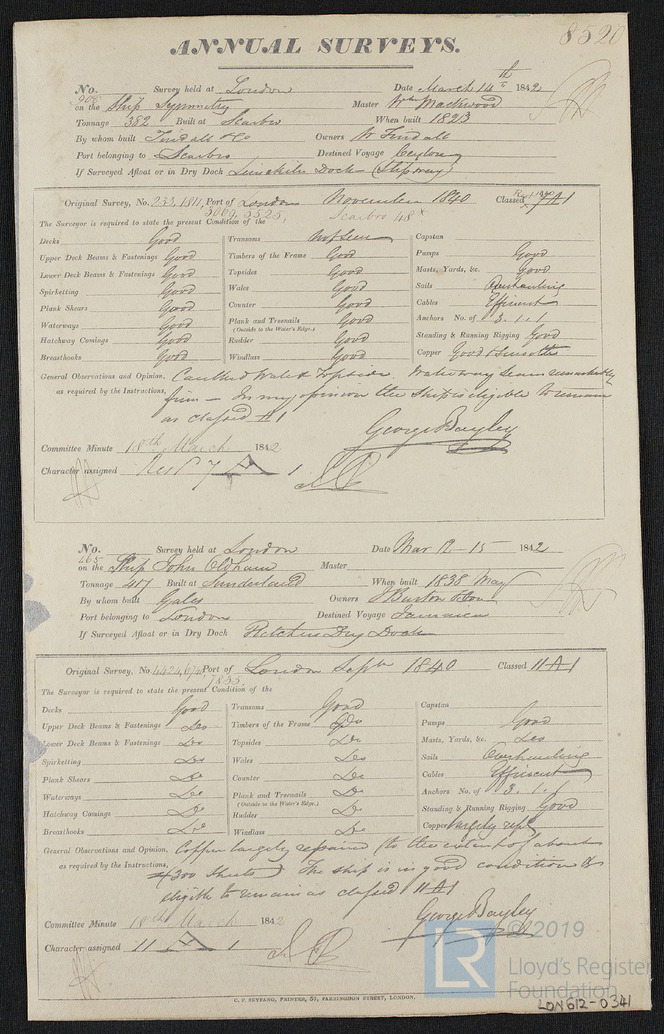 8520
ANNUAL SURVEYS.
No. Survey held at London Date March 14th 1842
on the Ship Symmetry Master Mackwood
Tonnage 382 Built at Scarbro When built 1823
By whom built Tindall & Co Owners W Tindall
Port belonging to Scarbro Destined Voyage Ceylon
If Surveyed Afloat or in Dry Dock Limekiln Dock (Slipway)
Original Survey, No. 233, 1811, Port of London November 1840 Classed Æ1
3069, 5525, Scarbro 48
The Surveyor is required to state the present Condition of the
Decks Good Transoms Not seen Capstan
Upper Deck Beams & Fastenings Good Timbers of the Frame Good Pumps Good
Lower Deck Beams & Fastenings Good Topsides Good Masts, Yards, &c. Good
Spirketting Good Wales Good Sails Overhauling
Plank Shears Good Counter Good Cables Efficient
Waterways Good Plank and Treenails Good Anchors No. of 3. 1. 1
(Outside to the Water's Edge.)
Hatchway Comings Good Rudder Good Standing & Running Rigging Good
Breasthooks Good Windlass Good Copper Good &
General Observations and Opinion, Caulked Wales & Topside. Waterway seams remarkably
as required by the Instructions, firm — In my opinion the ship is eligible to remain
as classed Æ1
George Bayley
Committee Minute 18th March 1842
Character assigned 7 A 1
No. Survey held at London Date Mar 12-15 1842
465
on the Ship John Oldham Master
Tonnage 417 Built at Sunderland When built 1838 May
By whom built Gales Owners J Burton & Son
Port belonging to London Destined Voyage Jamaica
If Surveyed Afloat or in Dry Dock Fletchers Dry Dock
Original Survey, No. Port of London Septr 1840 Classed 11 A1
7855
The Surveyor is required to state the present Condition of the
Decks Good Transoms Good Capstan
Upper Deck Beams & Fastenings Do Timbers of the Frame Do Pumps Good
Lower Deck Beams & Fastenings Do Topsides Do Masts, Yards, &c. Do
Spirketting Do Wales Do Sails Overhauling
Plank Shears Do Counter Do Cables Efficient
Waterways Do Plank and Treenails Do Anchors No. of 3. 1. 1
(Outside to the Water's Edge.)
Hatchway Comings Do Rudder Do Standing & Running Rigging Good
Breasthooks Do Windlass Do Copper largely repd
General Observations and Opinion, Copper largely repaired (to the extent of about
as required by the Instructions, 300 sheets) The ship is in good condition &
eligible to remain as classed 11 A1
George Bayley
Committee Minute 18th March 1842
Character assigned 11 A 1
C. F. SEYFANG, PRINTER, 57, FARRINGDON STREET, LONDON.
LR © 2019
Lloyd's Register
Foundation
LDN612-0341